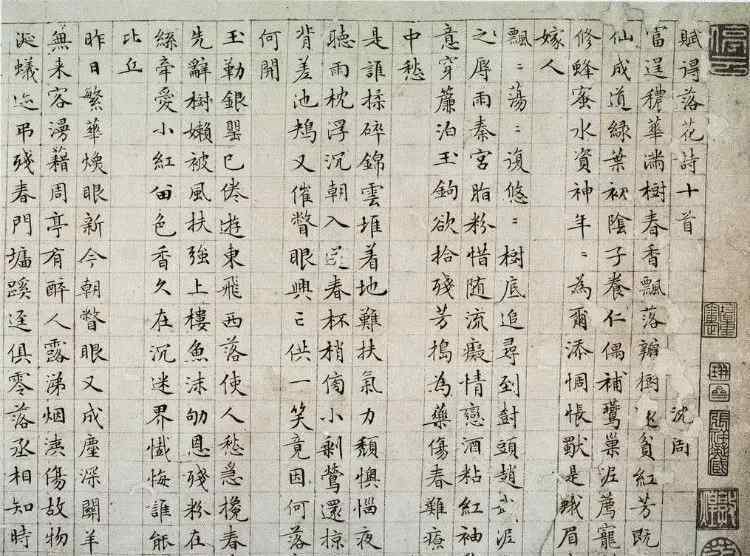 賦得落花詩十首 沈周
富逞穠華滿樹春香飄落瓣樹還貧紅芳既
仙成道綠葉初陰子養仁偶補鶯巢泥薦寵
修蜂蜜水資神年〻為爾添惆悵獸是蛾眉
嫁人
飄〻蕩〻復悠〻樹底追尋到樹頭趙武泥
之辱雨秦宮脂粉惜随流癡情戀酒粘紅袖
意穿簾泊玉鉤欲拾殘芳搗為藥傷春難療
中愁
是誰揉碎錦雲堆着地難扶氣力頹懊惱夜
聽雨枕浮沉朝入送春杯梢傍小剩鶯還掠
背差池鴂又催瞥眼興亡供一笑竟因何落
何開
玉勒銀罌已倦遊東飛西落使人愁急攙春
先辭樹嬾被風扶強上樓魚沫劬恩殘粉在
絲牽愛小紅留色香久在沉迷界懺悔誰能
比丘
昨日繁華煥眼新今朝瞥眼又成塵深關羊
無來客漫藉周亭有醉人露涕烟洟傷故物
涎蟻迹弔殘春門墻蹊逕俱零落丞相知時